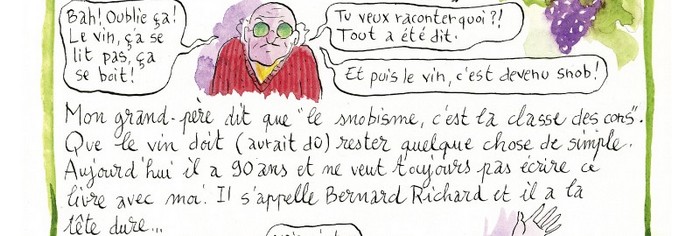 Bah! Oublie ça!
Le vin, ça se
lit pas, ça
se boit!
Tu veux raconter quoi?!
Tout a été dit.
Et puis le vin, c'est devenu snob!
Mon grand-père dit que "le snobisme, c'est la classe des cons".
Que le vin doit (aurait dû) rester quelque chose de simple.
Aujourd'hui il a 90 ans et ne veut toujours pas écrire ce
livre avec moi. Il s'appelle Bernard Richard et il a la
tête dure...